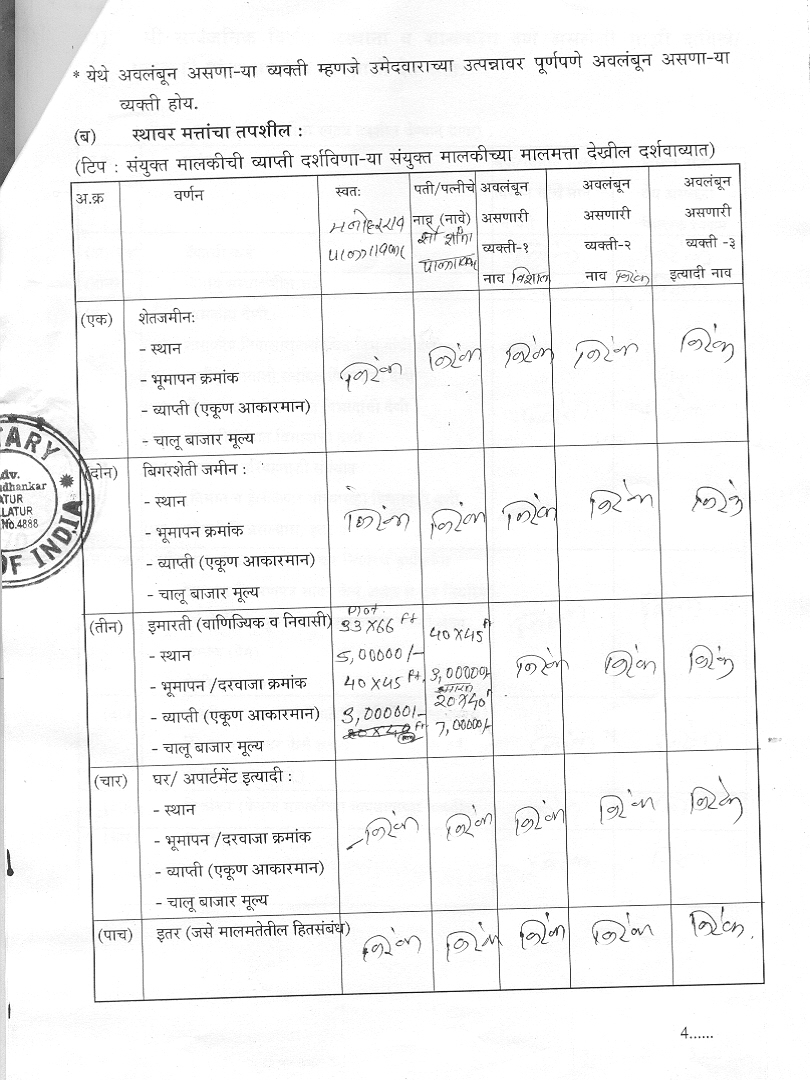 * येथे अवलंबून असणा-या व्यक्ती म्हणजे उमेदवाराच्या उत्पन्नावर पूर्णपणे अवलंबून असणा-या
व्यक्ती होय.
(ब) स्थावर मत्तांचा तपशील :
(टिप : संयुक्त मालकीची व्याप्ती दर्शविणा-या संयुक्त मालकीच्या मालमत्ता देखील दर्शवाव्यात)
अ.क्र वर्णन स्वतः पती/पत्नीचे अवलंबून अवलंबून अवलंबून
मनोहरराव नाव (नावे) असणारी असणारी असणारी
व्यक्ती-१ व्यक्ती-२ व्यक्ती -३
नाव विशाल नाव निरंक इत्यादी नाव
(एक) शेतजमीन:
- स्थान
- भूमापन क्रमांक निरंक निरंक निरंक निरंक निरंक
- व्याप्ती (एकूण आकारमान)
- चालू बाजार मूल्य
TARY
Adv.
dhankar
ATUR
LATUR
No.4888
OF INDIA
(दोन) बिगरशेती जमीन :
- स्थान निरंक निरंक निरंक निरंक निरंक
- भूमापन क्रमांक
- व्याप्ती (एकूण आकारमान)
- चालू बाजार मूल्य
(तीन) इमारती (वाणिज्यिक व निवासी) 33X66 Ft 40X45 ft
- स्थान 5,00000/- निरंक निरंक निरंक
- भूमापन /दरवाजा क्रमांक 40X45 Ft. 3,00000/-
- व्याप्ती (एकूण आकारमान) 3,00000/- 20X40 ft
- चालू बाजार मूल्य 7,00000/-
(चार) घर/ अपार्टमेंट इत्यादी :
- स्थान
- भूमापन /दरवाजा क्रमांक निरंक निरंक निरंक निरंक निरंक
- व्याप्ती (एकूण आकारमान)
- चालू बाजार मूल्य
(पाच) इतर (जसे मालमतेतील हितसंबंध) निरंक निरंक निरंक निरंक निरंक.
4......